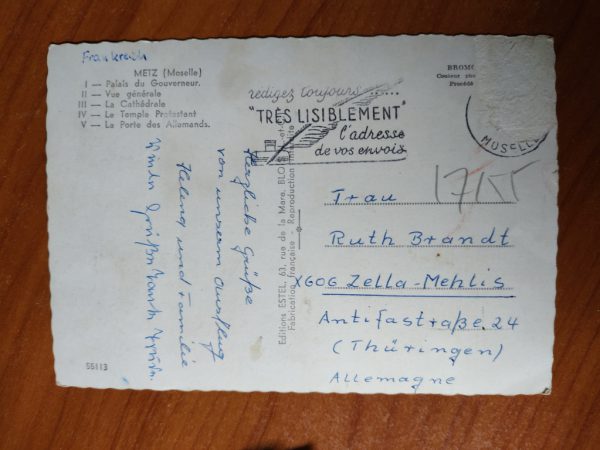 Frankreich
METZ (Moselle)
I — Palais du Gouverneur.
II — Vue générale
III — La Cathédrale
IV — Le Temple Protestant
V — La Porte des Allemands.
Herzliche Grüße
von unserem Ausflug
Helena und Familie
55113
Editions ESTEL, 63, rue de la Mare, BLOIS
Fabrication française - Reproduction interdite
BROMO
Couleur
Procédé
redigez toujours ......
"TRÈS LISIBLEMENT"
l'adresse
de vos envois
MOSELLE
17155
Frau
Ruth Brandt
X606 Zella-Mehlis
Antifastraße 24
(Thüringen)
Allemagne